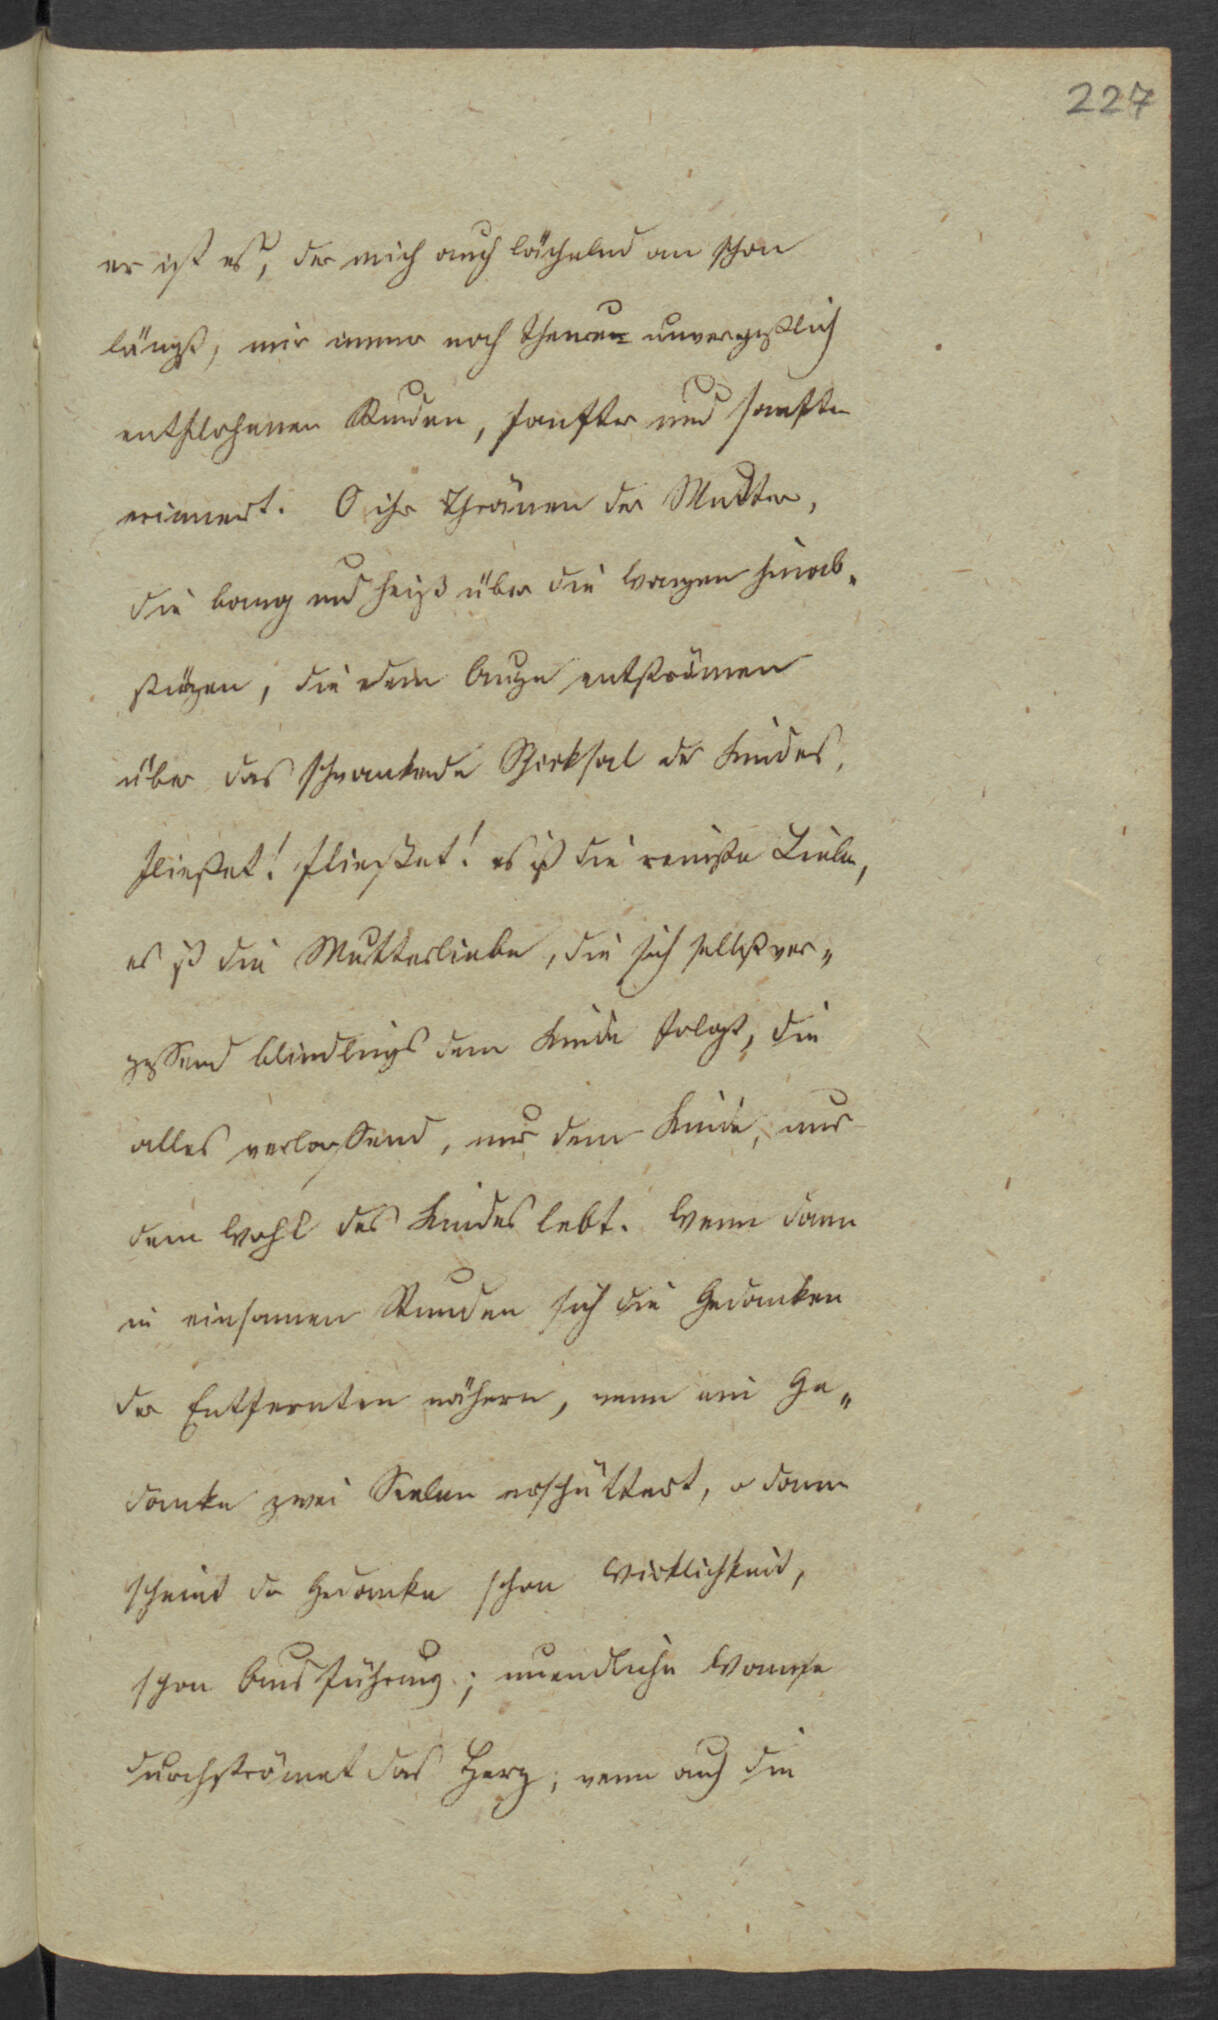 227
er ist es, der mich auch lächelnd an schon
längst, mir immer noch theuren unvergeßlich
entflohenen Stunden, sanfter und sanfter
erinnert. O ihr Thränen der Mutter,
die bang und heiß über die Wangen hinab„
stürzen, die dem Auge entströmen
über das schwankende Schicksal des Kindes,
fließet! fließet! es ist die reinste Liebe,
es ist die Mutterliebe, die sich selbst ver„
gessend blindlings dem Kinde folgt, die
alles verlassend, nur dem Kinde, nur
dem Wohl des Kindes lebt. Wenn dann
in einsamen Stunden sich die Gedanken
der Entfernten nähern, wenn ein Ge„
danke zwei Seelen erschüttert, o dann
scheint der Gedanke schon Wirklichkeit,
schon Ausführung; unendliche Wonne
durchströmet das Herz; wenn auch die